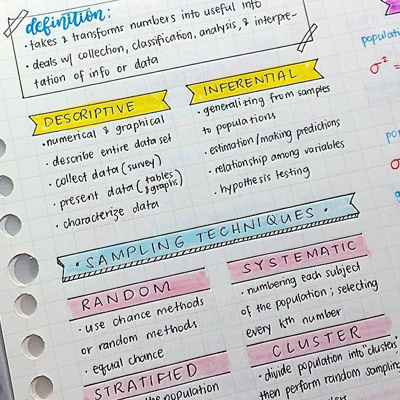 definition:
• takes & transforms numbers into useful info
• deals w/ collection, classification, analysis, & interpre-
tation of info or data
DESCRIPTIVE
• numerical & graphical
• describe entire data set
• collect data (survey)
• present data (tables & graphs)
• characterize data
INFERENTIAL
• generalizing from samples
to populations
• estimation/making predictions
• relationship among variables
• hypothesis testing
• SAMPLING TECHNIQUES •
RANDOM
• use chance methods
or random methods
• equal chance
SYSTEMATIC
• numbering each subject
of the population; selecting
every kth number
STRATIFIED
the population
CLUSTER
• divide population into "clusters"
then perform random sampling
σ² =